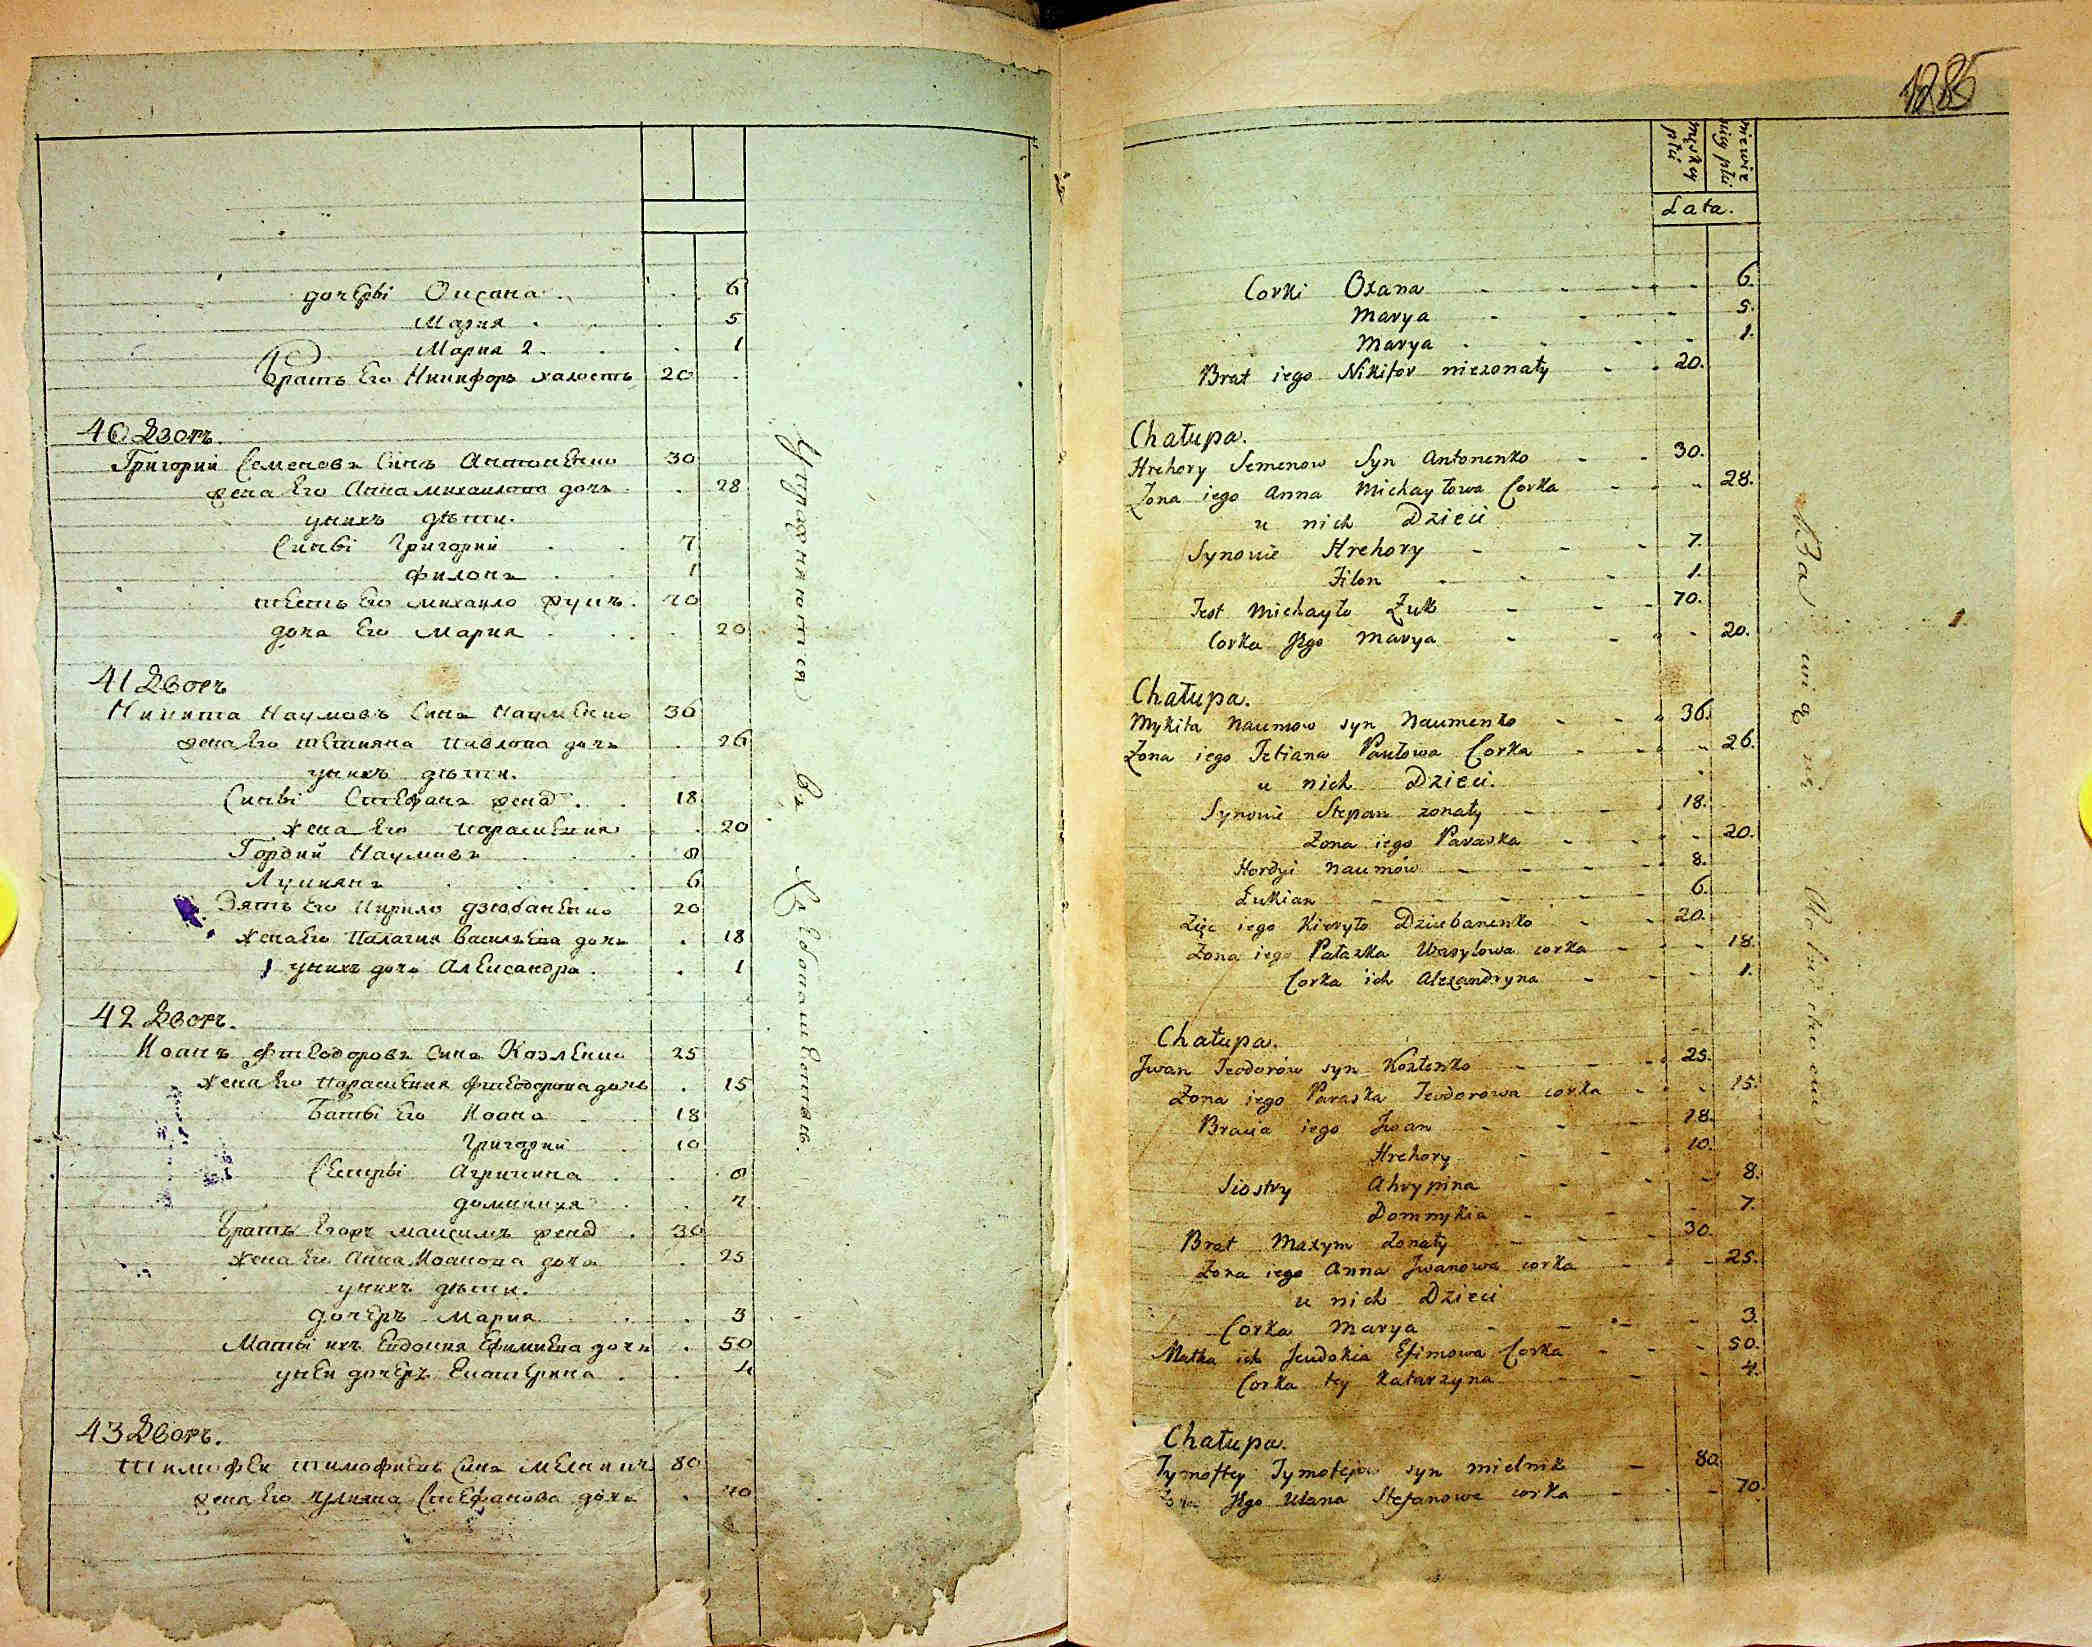 дочерві Оксана . . 6
Мария . . 5
Мария 2. . . 1
Братъ Его Никифоръ халостъ 20 .
40 Дворъ.
Григорий Семеновъ Синъ Антоненко 30
жена Его Анна михаилова дочь . 28
унихъ дѣти.
Синві Григорий . . 7
Филонъ . . 1
тесть Его михаило жукъ . 70
доча Его Мария . . . 20
41 Дворъ
Никита Наумовъ Синъ Науменко 36
жена Его тетияна Павлова дочь . 26
унихъ дѣти.
Синві Стефанъ женд . . 18
жена Его параскения . 20
Гордий Наумовъ . . 8
Лукиянъ . . 6
Зять Его Кирило дзюбаненко 20
жена Его Палагия василѣва дочь . 18
унихъ доча Александра . . 1
42 Дворъ.
Иоанъ Фтеодоровъ Синъ Козленко 25
жена Его Параскения Фтеодорова дочь . 15
Братві Его Иоанъ 18
Григорий . 10
Сестрві Агрипина . . 8
доминикия . . 7
Братъ Егоръ максимъ женд . 30
жена Его Анна Иоанова дочь . 25
унихъ дѣти.
дочеръ Мария . . 3
Маты ихъ Евдокия Ефимиева дочь . 50
уней дочеръ Екатерина . . 4
43 Дворъ.
тимофей тимофиевъ Синъ мелникъ 80
жена Его улияна Стефанова дочь . 70
Упражняются въ Хлебопашествѣ.
1285
męzkey płci
niewie sciey płci
Lata.
Corki Oxana - - - 6.
Marya - - - 5.
Marya - - - 1.
Brat iego Nikifor niezonaty - - 20.
Chałupa.
Hrehory Semenow Syn Antonenko - - 30.
Zona iego Anna Michayłowa Corka - - - 28.
u nich Dzieci
Synowie Hrehory - - - 7.
Filon - - - 1.
Test Michayło Żuk - - - 70.
Corka Jego Marya - - - 20.
Chałupa.
Mykita Naumow syn Naumenko - - 36.
Żona iego Tetiana Pawłowa Corka - - - 26.
u nich Dzieci.
Synowie Stepan zonaty - - - 18.
Żona iego Paraska - - - 20.
Hordyi Naumów - - - 8.
Łukian - - - 6.
Zięc iego Kieryło Dziubanenko - - 20.
Żona iego Pałazka Wasylowa corka - - - 18.
Corka ich Alexandryna - - - 1.
Chałupa.
Jwan Teodorów syn Kozłenko - - - 25.
Żona iego Paraska Teodorowa corka - - - 15.
Bracia iego Jwan - - - 18.
Hrehory - - 10.
Siostry Ahrypina - - - 8.
Domnykia - - - 7.
Brat Maxym żonaty - - - 30.
Żona iego Anna Jwanowa corka - - - 25.
u nich Dzieci
Corka Marya - - - 3.
Matka ich Jeudokia Efimowa Corka - - - 50.
Corka tey Katarzyna - - - 4.
Chałupa.
Tymoftey Tymofejow syn mielnik - 80.
Jego Ulana Stefanowa corka - - - 70.